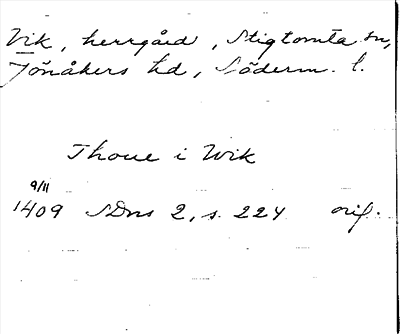 Vik, herrgård, Stigtomta sn,
Jönåkers hd, Söderm. l.
Thoue i Wik
9/11
1409 SDns 2, s. 224 orig.